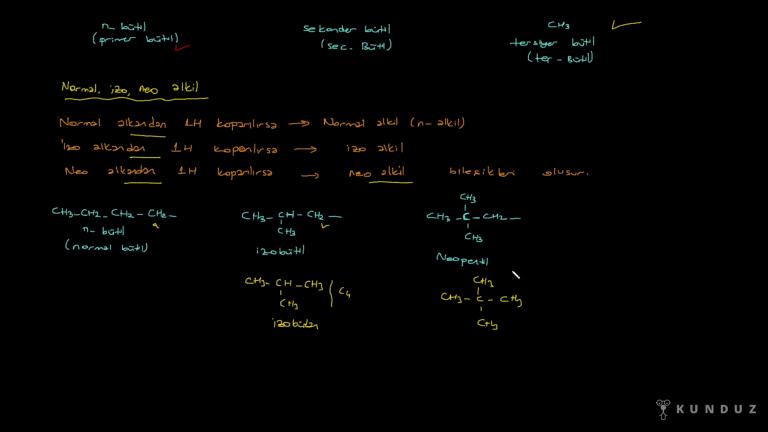 n_ bütil
(primer bütil)
sekonder bütil
(sec. Bütil)
CH₃
tersiyer bütil
(ter - Bütil)
Normal, izo, neo alkil
Normal alkandan 1H koparılırsa → Normal alkil (n-alkil)
İzo alkandan 1H koparılırsa → izo alkil
Neo alkandan 1H koparılırsa → neo alkil bileşikleri oluşur.
CH₃-CH₂-CH₂-CH₂-
n- bütil
(normal bütil)
CH₃-CH-CH₂-
CH₃
izobütil
CH₃
CH₃-C-CH₂-
CH₃
Neopentil
CH₃-CH-CH₃ C₄
CH₃
izobütan
CH₃
CH₃-C-CH₃
CH₃
KUNDUZ